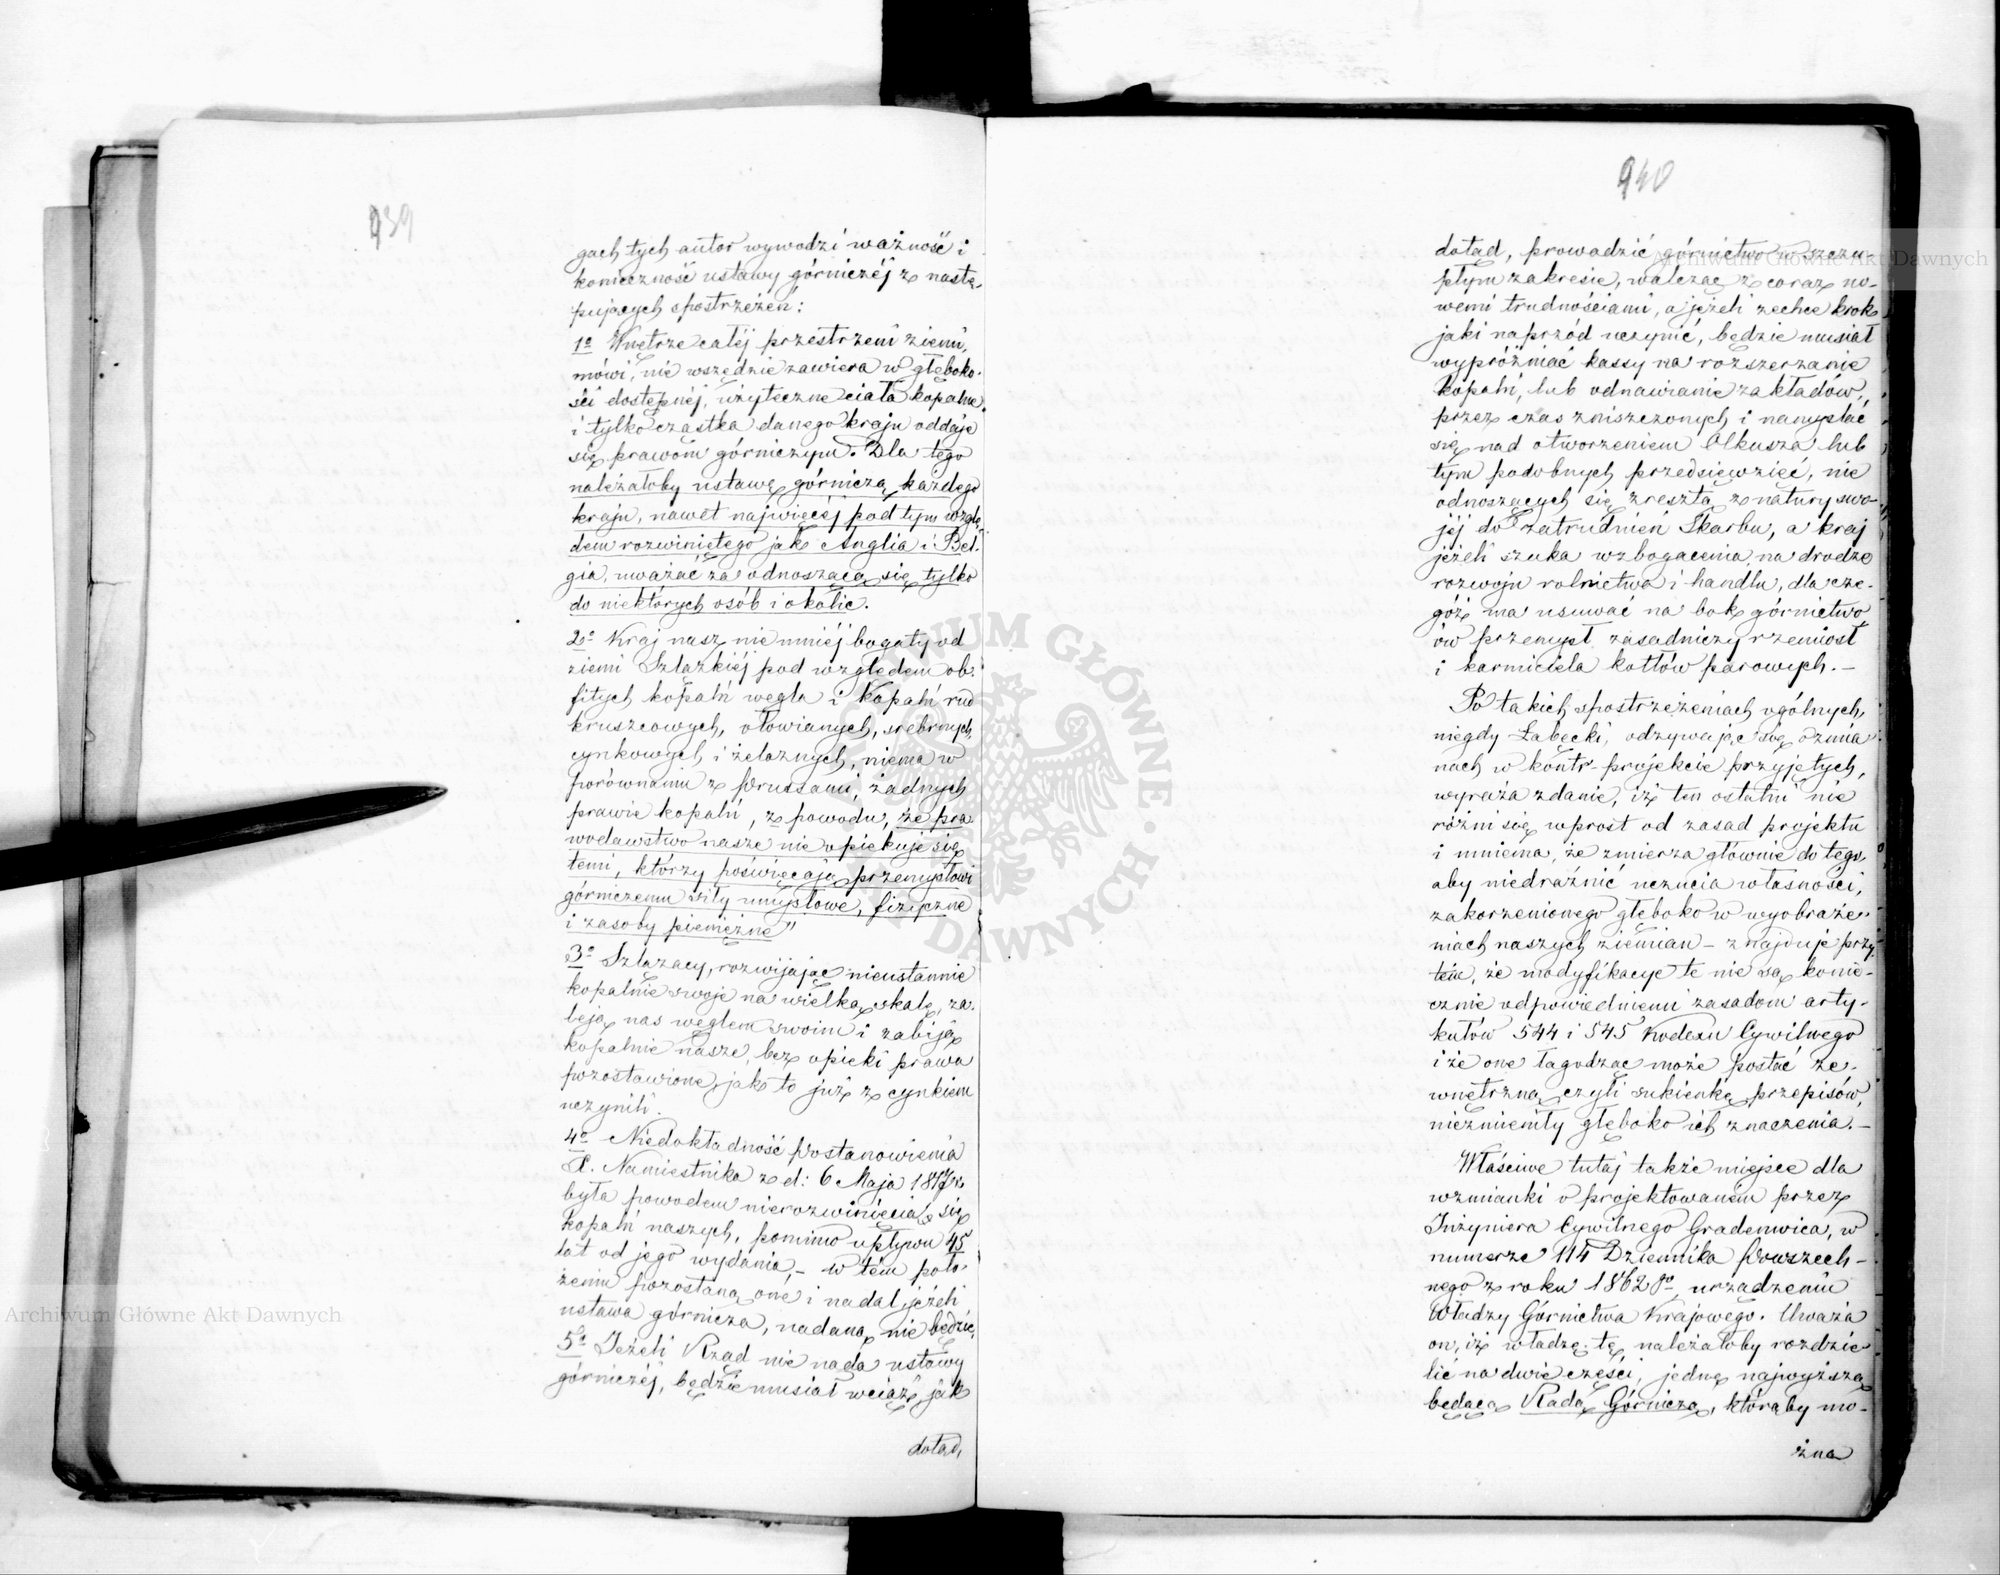 939
gach tych autor wywodzi ważność i
konieczność ustawy górniczéj z nastę-
pujących spostrzeżeń:
1o Wnętrze całéj przestrzeni ziemi,
mówi, nie wszędzie zawiera w głęboko-
ści dostępnéj, użyteczne ciała kopalne
i tylko cząstka danego kraju oddaje
się prawom górniczym. Dla tego
należałoby ustawę górniczą każdego
kraju, nawet najwięcéj pod tym wzglę-
dem rozwiniętego jak Anglia i Bel-
gia, uważać za odnoszącą się tylko
do niektórych osób i okolic.
2o Kraj nasz nie mniéj bogaty od
ziemi Szlązkiéj pod względem ob-
fitych kopalń węgla i kopalń rud
kruszcowych, ołowianych, srebrnych,
cynkowych i żelaznych, niema w
porównaniu z Prussami, żadnych
prawie kopalń, z powodu, że pra-
wodawstwo nasze nie opiekuje się
temi, którzy poświęcają przemysłowi
górniczemu siły umysłowe, fizyczne
i zasoby pieniężne"
3o Szlązacy, rozwijając nieustannie
kopalnie swoje na wielką skalę, za-
leją nas węglem swoim i zabiją
kopalnie nasze, bez opieki prawa
pozostawione, jak to już z cynkiem
uczynili.
4o Niedokładność Postanowienia
X. Namiestnika z d: 6 Maja 1817 r.
była powodem nierozwinięcia się
kopalń naszych, pomimo upływu 45
lat od jego wydania, – w tém poło-
żeniu pozostaną one i nadal jeżeli
ustawa górnicza, nadaną nie będzie.
5o Jeżeli Rząd nie nada ustawy
górniczéj, będzie musiał wciąż, jak
dotąd,
940
dotąd, prowadzić górnictwo w szczu-
płym zakresie, walcząc z coraz no-
wemi trudnościami, a jeżeli zechce krok
jaki naprzód uczynić, będzie musiał
wypróżniać kassy na rozszerzanie
kopalń, lub odnawianie zakładów,
przez czas zniszczonych i namyślać
się nad otworzeniem Olkusza lub
tym podobnych przedsięwzięć, nie
odnoszących się zresztą z natury swo-
jéj do zatrudnień Skarbu, a kraj
jeżeli szuka wzbogacenia na drodze
rozwoju rolnictwa i handlu, dla cze-
góż ma usuwać na bok górnictwo
ów przemysł zasadniczy rzemiosł
i karmiciela kotłów parowych. –
Po takich spostrzeżeniach ogólnych,
niegdy Łabęcki, odzywając się o zmia-
nach w kontr-projekcie przyjętych,
wyraża zdanie, iż ten ostatni nie
różni się wprost od zasad projektu
i mniema, że zmierza głównie do tego,
aby niedraźnić uczucia własności,
zakorzenionego głęboko w wyobraże-
niach naszych ziemian – znajduje przy-
tém, że modyfikacye te nie są konie-
cznie odpowiedniemi zasadom arty-
kułów 544 i 545 Kodexu Cywilnego
i że one łagodząc może postać ze-
wnętrzną czyli sukienkę przepisów,
niezmieniły głęboko ich znaczenia. –
Właściwe tutaj także miejsce dla
wzmianki o projektowaniu przez
Inżyniera Cywilnego Gradenwica, w
numerze 114 Dziennika Powszech-
nego z roku 1862go, urządzeniu
Władzy Górnictwa Krajowego. Uważa
on, iż władzę tę należałoby rozdzie-
lić na dwie części, jednę najwyższą
będącą Radą Górniczą, którąby mo-
żna
Archiwum Główne Akt Dawnych
Archiwum Główne Akt Dawnych